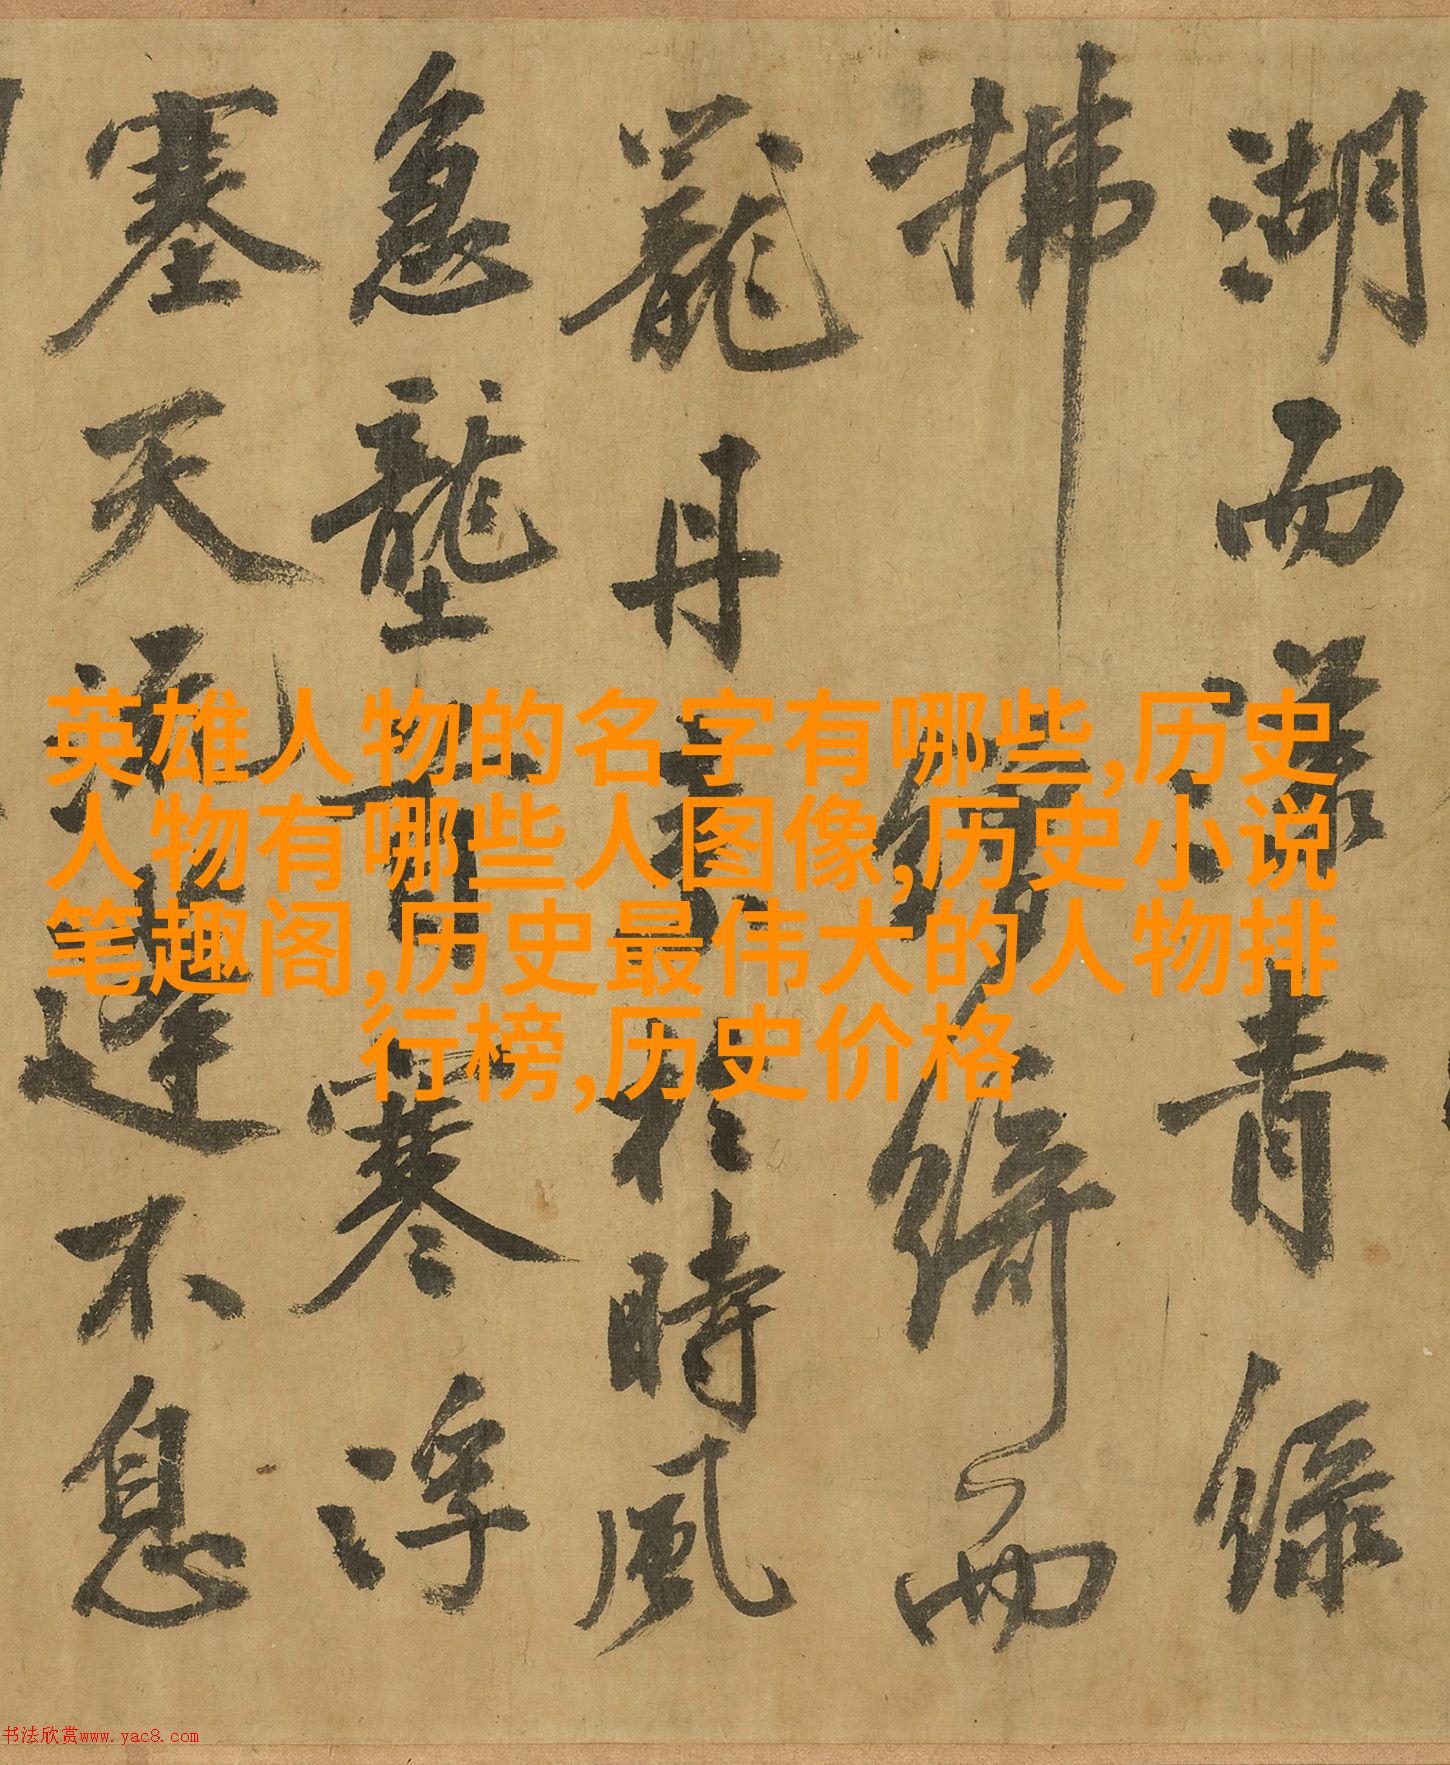 湖而漾青綠
拂綺而
丹於時風
急壟寒浮
塞天不息
英雄人物的名字有哪些,历史
人物有哪些人图像,历史小说
笔趣阁,历史最伟大的人物排
行榜,历史价格
书法欣赏www.yac8.com